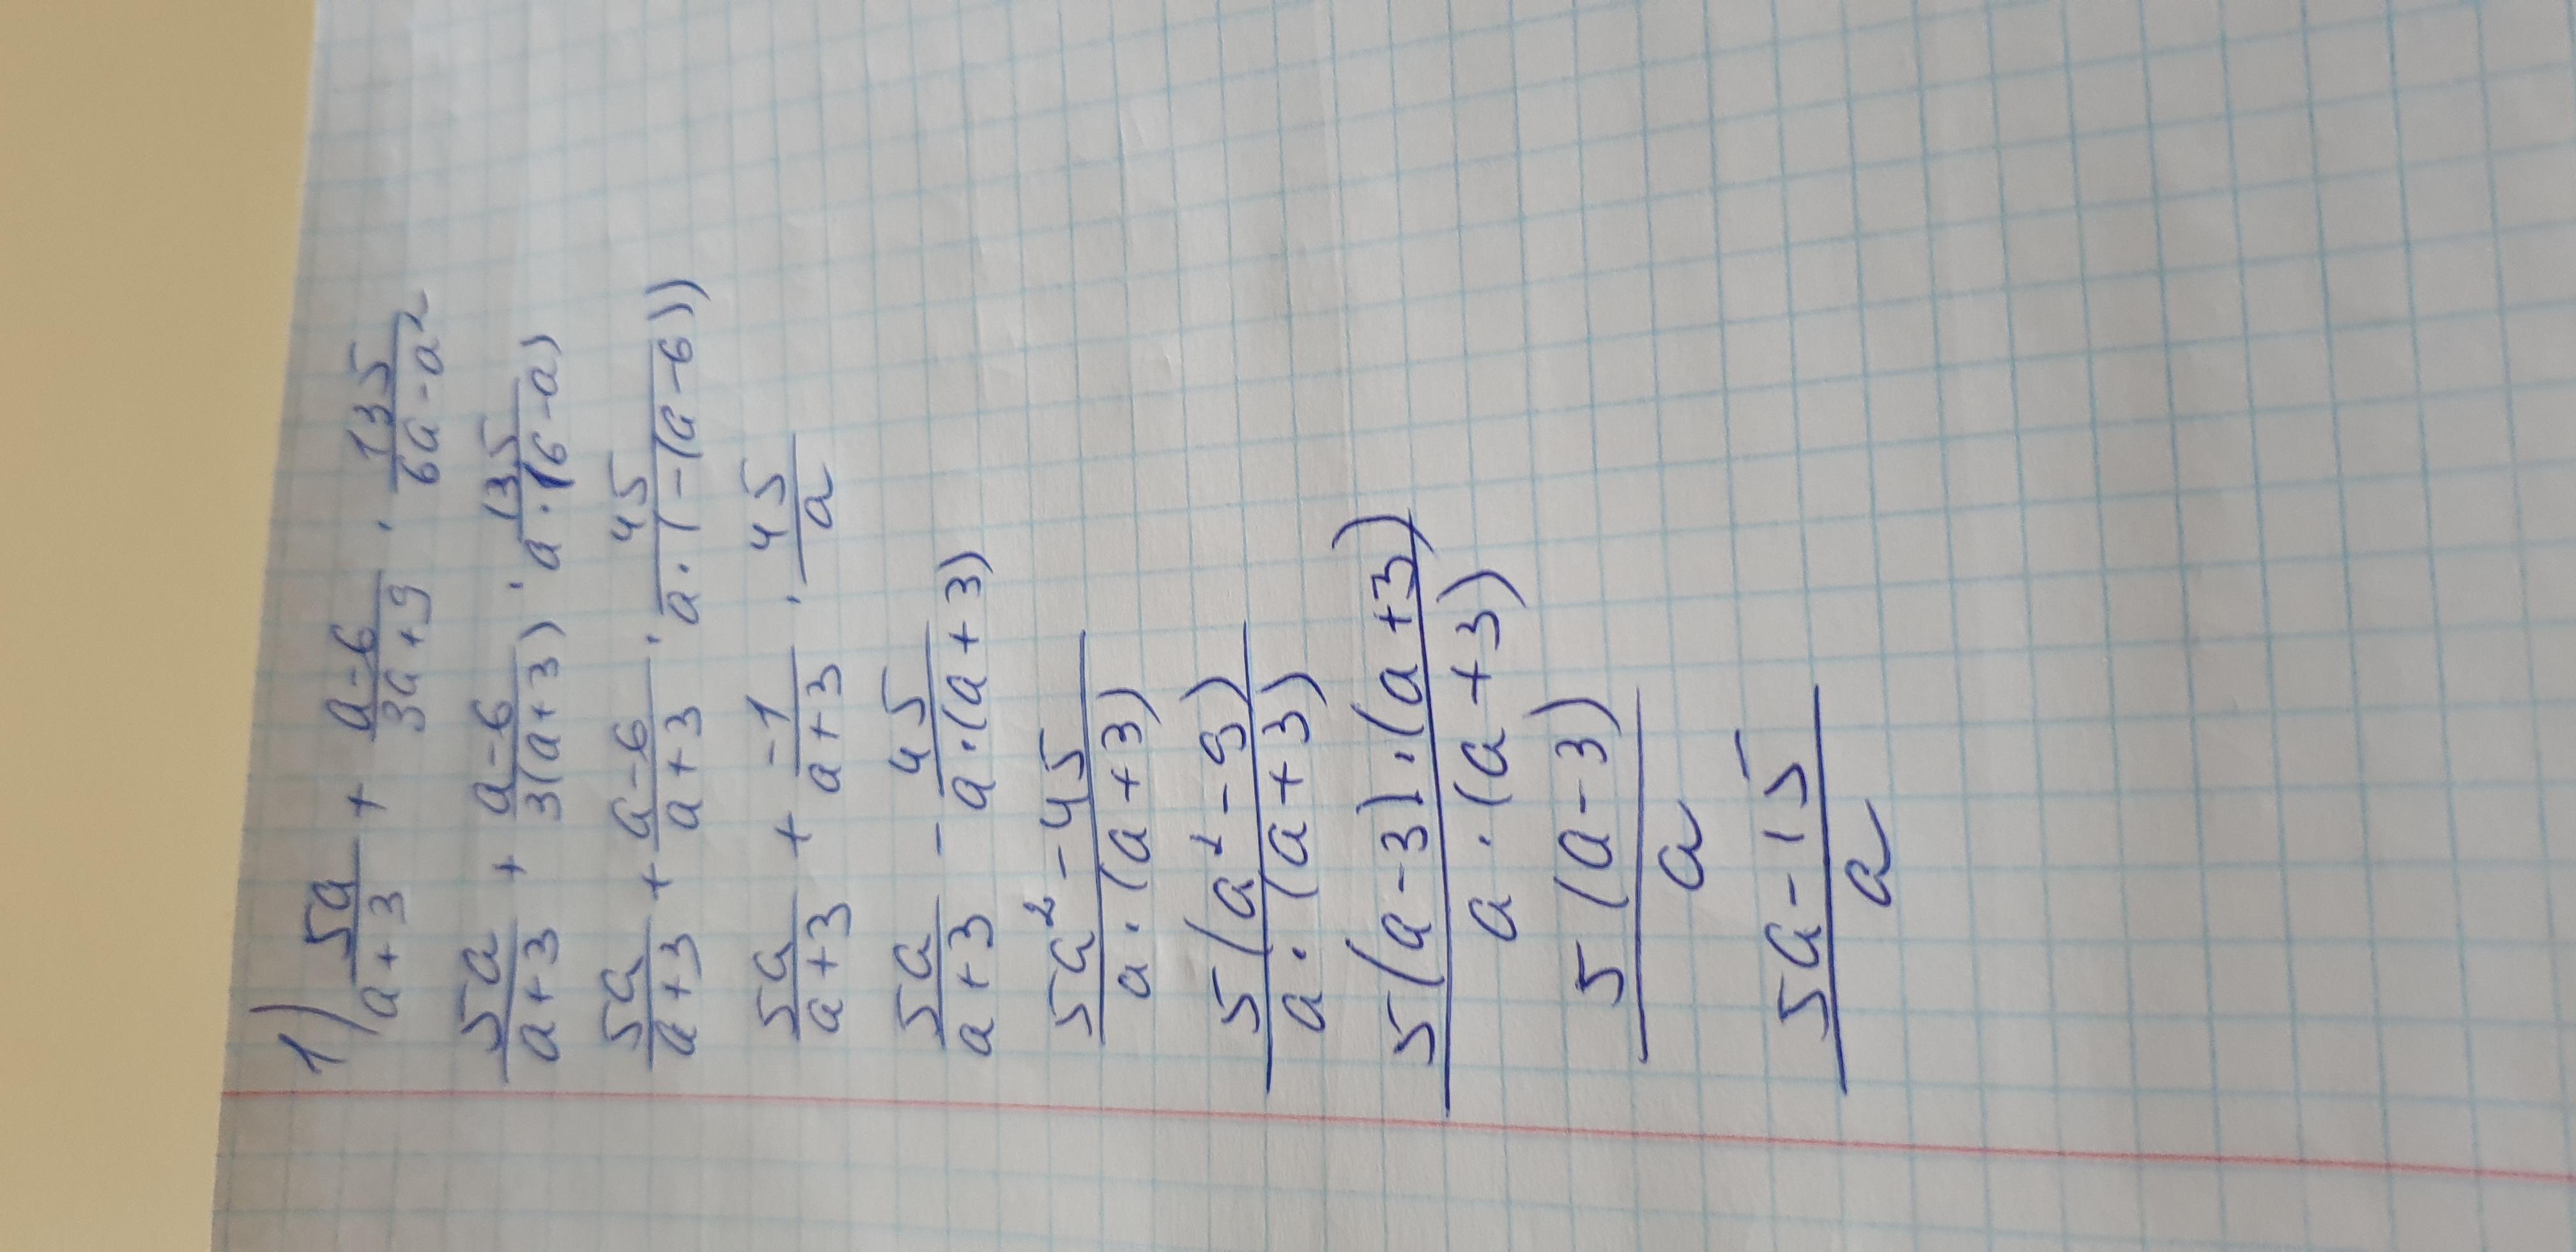 1) \frac{5a}{a+3} + \frac{a-6}{3a+9} · \frac{135}{6a-a²}
\frac{5a}{a+3} + \frac{a-6}{3(a+3)} · \frac{135}{a·(6-a)}
\frac{5a}{a+3} + \frac{a-6}{a+3} · \frac{45}{a·(-(a-6))}
\frac{5a}{a+3} + \frac{-1}{a+3} · \frac{45}{a}
\frac{5a}{a+3} - \frac{45}{a·(a+3)}
\frac{5a²-45}{a·(a+3)}
\frac{5(a²-9)}{a·(a+3)}
\frac{5(a-3)·(a+3)}{a·(a+3)}
\frac{5(a-3)}{a}
\frac{5a-15}{a}